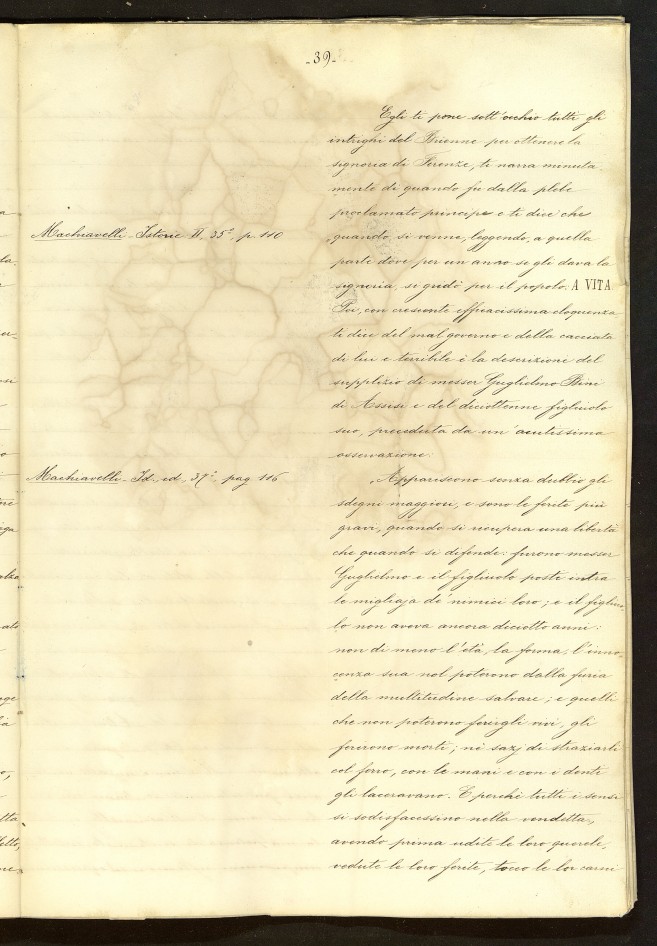 -39-
Egli ti pone sott'occhio tutti gli
intrighi del Brienne per ottenere la
signoria di Firenze, ti narra minuta
mente di quando fu dalla plebe
proclamato principe e ti dice che
Machiavelli - Istorie II, 35º, p. 110
quando si venne, leggendo, a quella
parte dove per un anno se gli dava la
signoria, si gridò per il popolo: A VITA
Poi, con crescente efficacissima eloquenza
ti dice del mal governo e della cacciata
di lui e terribile è la descrizione del
supplizio di messer Guglielmo
di Assisi e del diciottenne figliuolo
suo, preceduta da un'acutissima
osservazione:
Machiavelli - Id., ed, 37º pag 116
"Appariscono senza dubbio gli
sdegni maggiori, e sono le ferite più
gravi, quando si recupera una libertà
che quando si difende: furono messer
Guglielmo e il figliuolo posti intra
le migliaja de' nimici loro; e il figliuo
lo non aveva ancora diciotto anni:
non di meno l'età, la forma, l'inno-
cenza sua nol poterono dalla furia
della multitudine salvare; e quelli
che non poterono ferirgli vivi, gli
ferirono morti; nè sazj di straziarli
col ferro, con le mani e con i denti
gli laceravano. E perchè tutti i sensi
si sodisfacessino nella vendetta,
avendo prima udite le loro querele,
vedute le loro ferite, tocco le lor carni